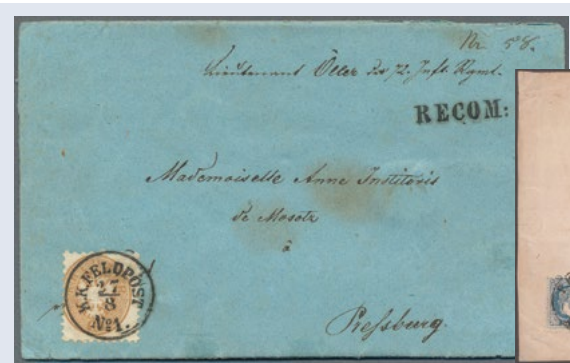 Nr. 58.
Lieutenant Öller des 72. Inft. Rgmt.
RECOM:
Mademoiselle Anne Institoris
de Mosotz
à
Pressburg.
K.K. FELDPOST
27
8
No 1.